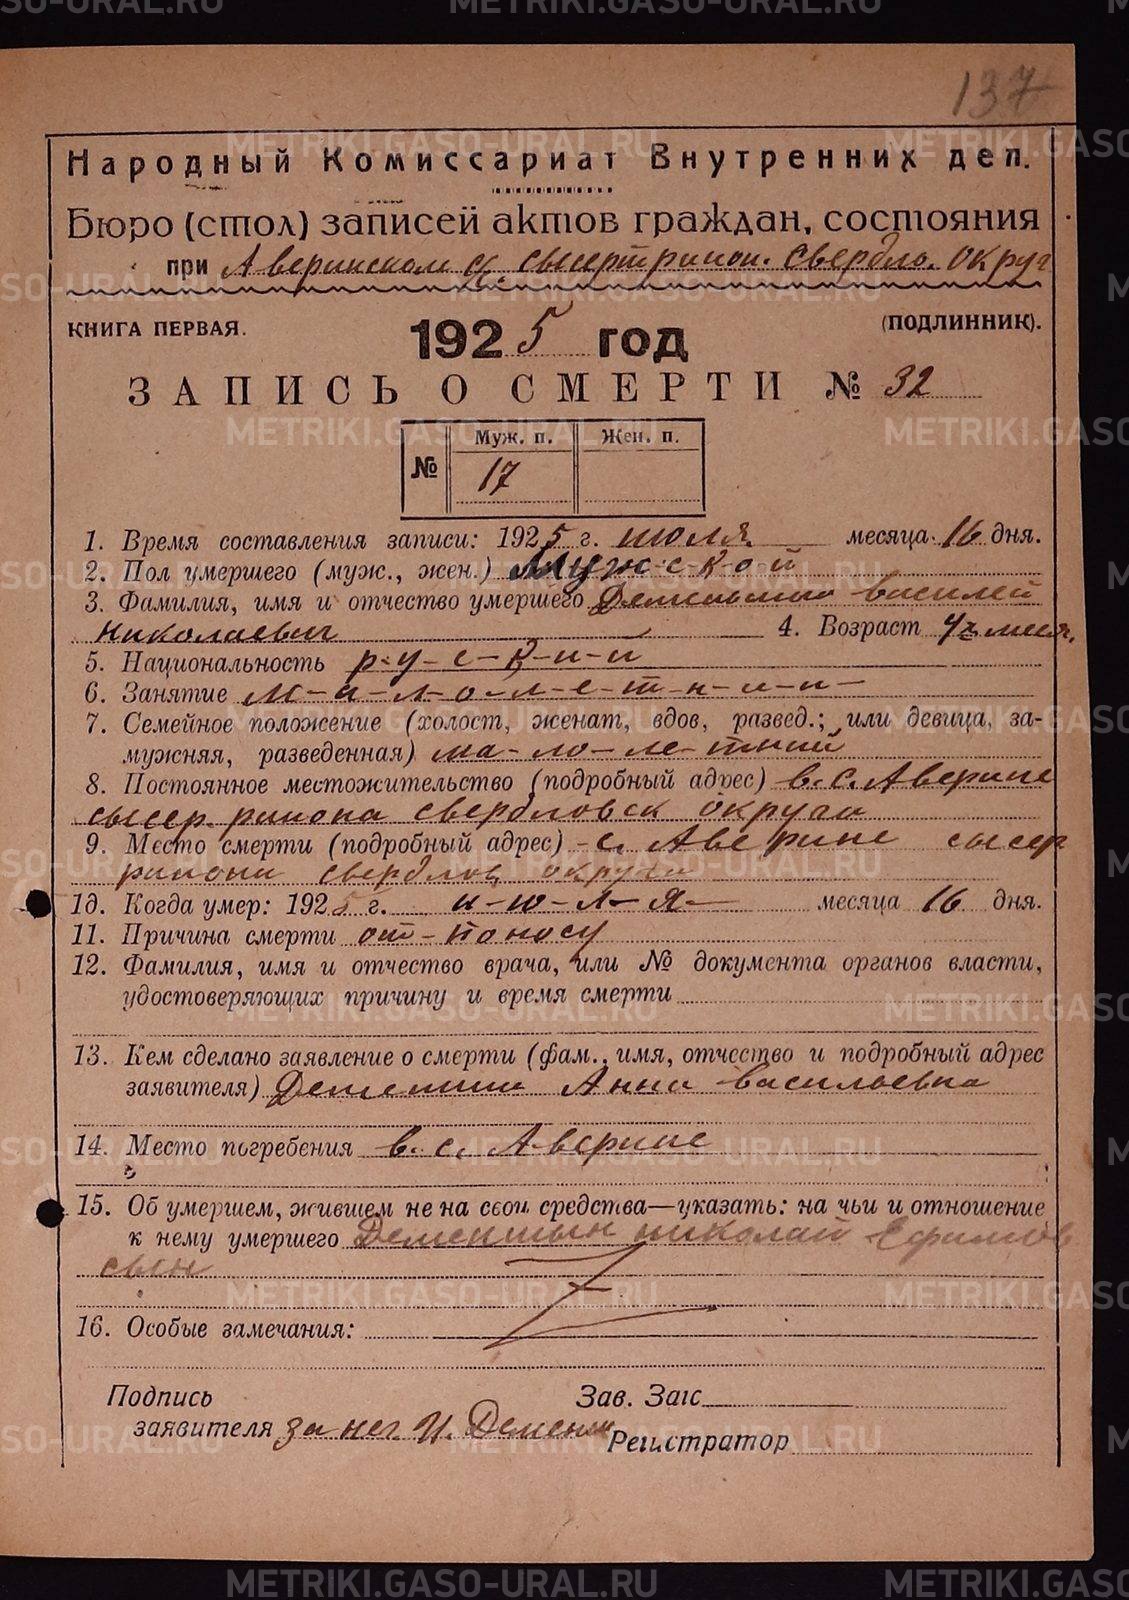 137
Народный Комиссариат Внутренних дел.
Бюро (стол) записей актов граждан, состояния
при Аверинском с/с. сысерт район. Свердло. Округ
КНИГА ПЕРВАЯ. 1925 год (ПОДЛИННИК).
ЗАПИСЬ О СМЕРТИ № 32
№ Муж. п. Жен. п.
17
1. Время составления записи: 1925 г. июля месяца 16 дня.
2. Пол умершего (муж., жен.) Муж-с-к-о-й
3. Фамилия, имя и отчество умершего василей
Николаевич 4. Возраст
5. Национальность р-у-с-к-и-й
6. Занятие м-а-л-о-л-е-т-н-и-й
7. Семейное положение (холост, женат, вдов, развед.; или девица, за-
мужняя, разведенная) ма-ло-ле-тний
8. Постоянное местожительство (подробный адрес) в. с. Аверине
сысер. района свердловск округа
9. Место смерти (подробный адрес) с. Аверине сысер
района свердлов округа
10. Когда умер: 1925 г. и-ю-л-я месяца 16 дня.
11. Причина смерти от-поносу
12. Фамилия, имя и отчество врача, или № документа органов власти,
удостоверяющих причину и время смерти
13. Кем сделано заявление о смерти (фам., имя, отчество и подробный адрес
заявителя) Анна васильевна
14. Место погребения в. с. Аверине
15. Об умершем, жившем не на свои средства—указать: на чьи и отношение
к нему умершего николай Ефимов
сын
16. Особые замечания:
Подпись Зав. Загс
заявителя за нег. Регистратор
METRIKI.GASO-URAL.RU